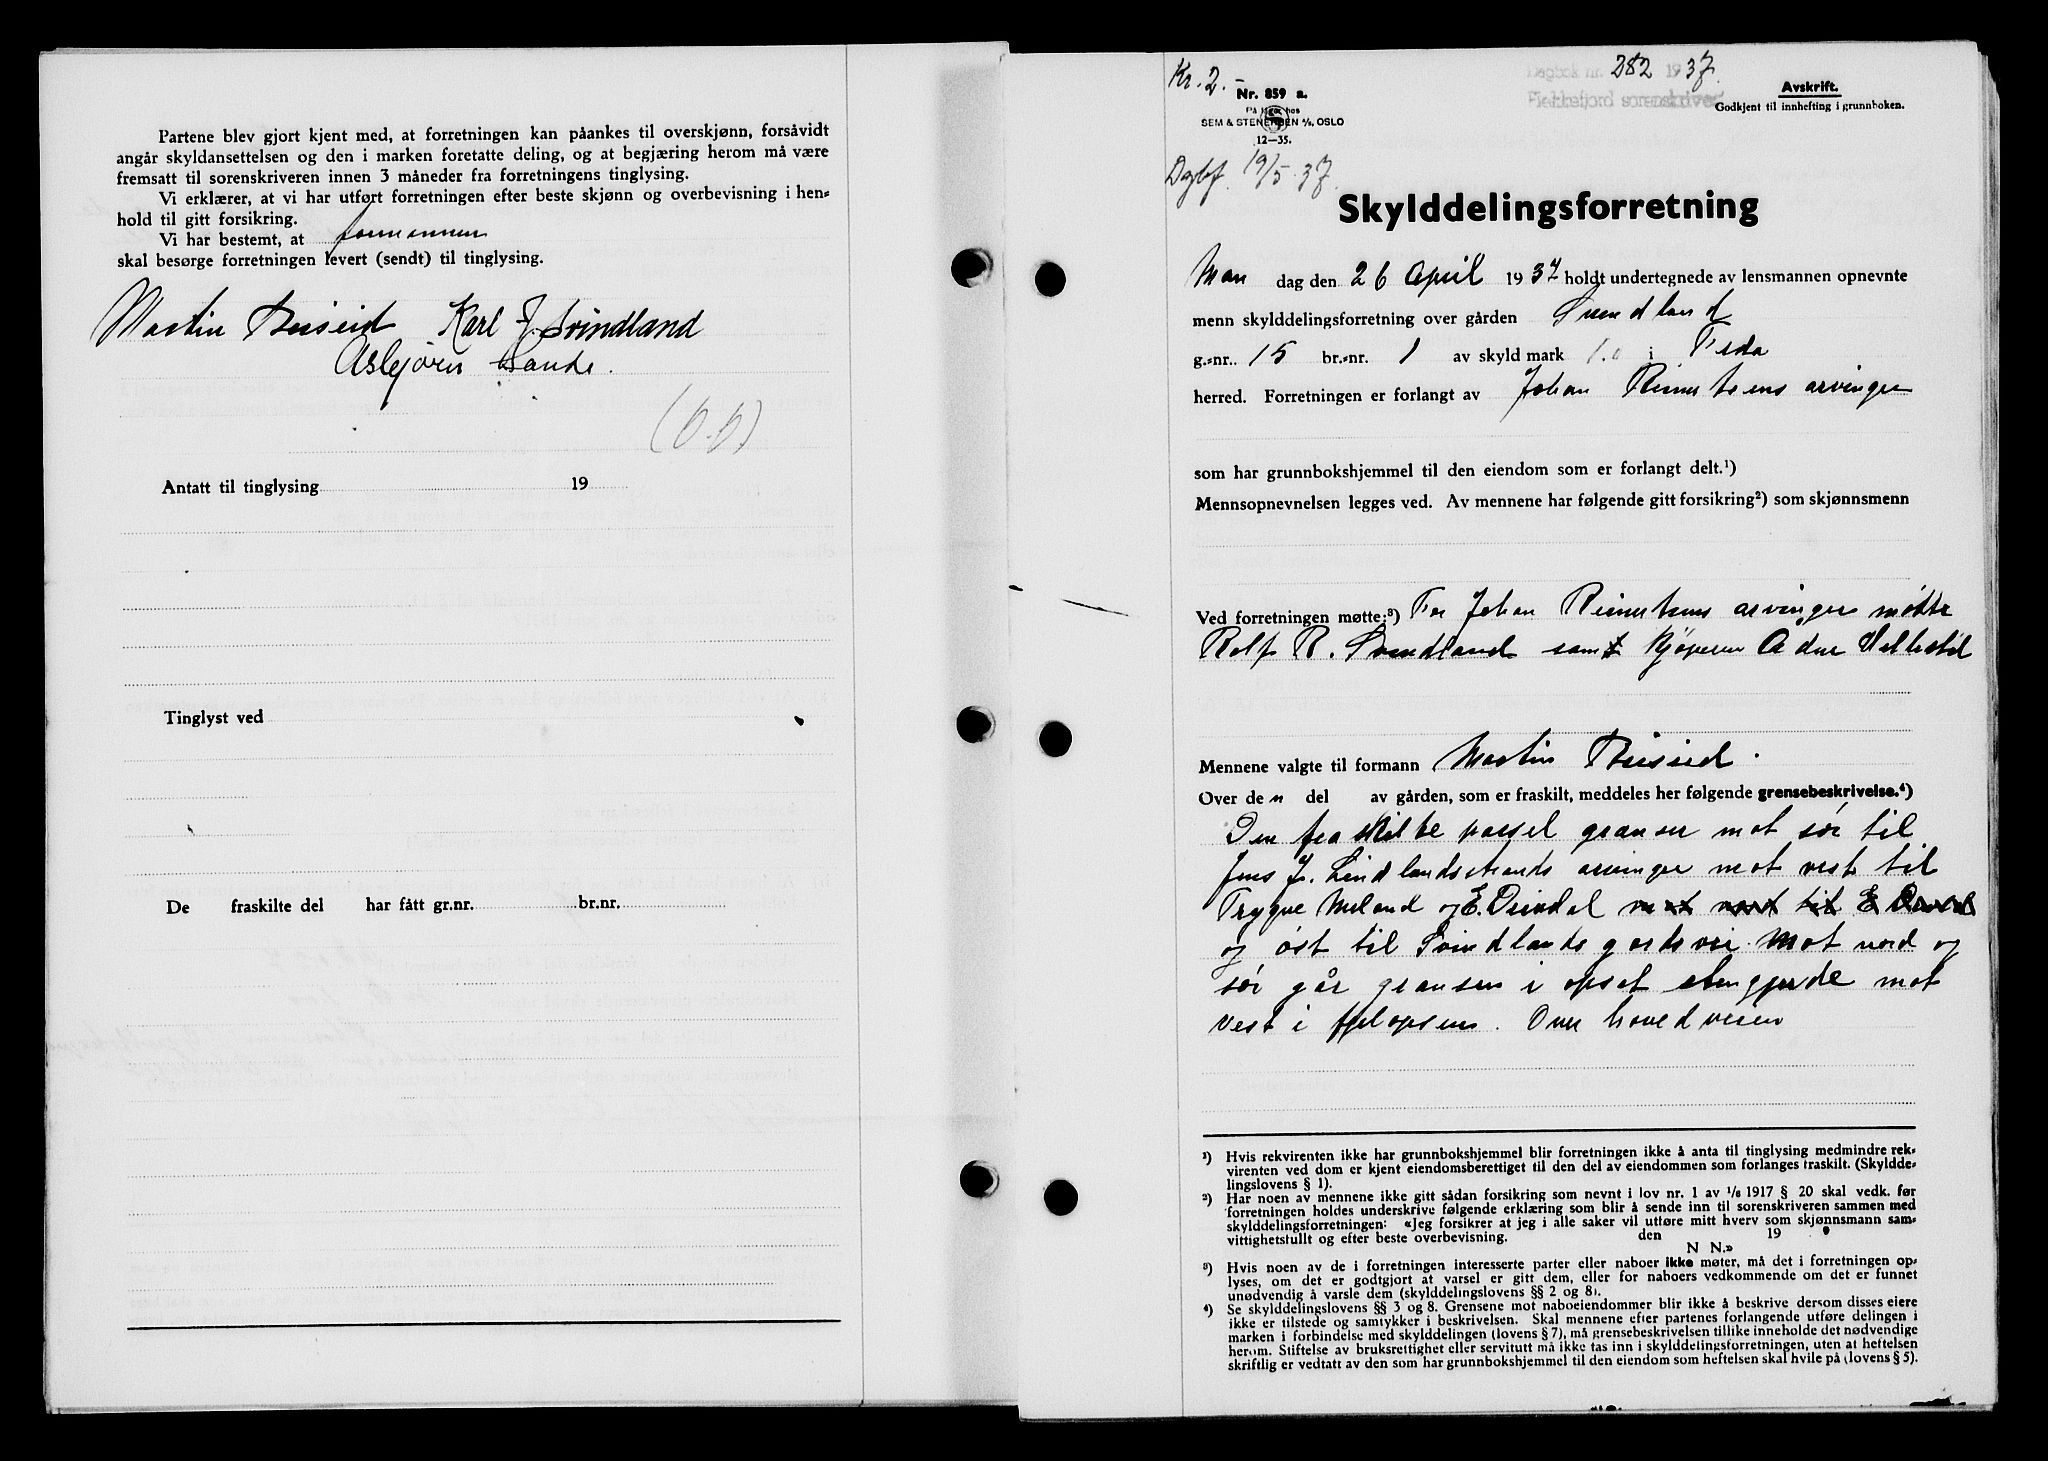 Partene blev gjort kjent med, at forretningen kan påankes til overskjønn, forsåvidt
angår skyldansettelsen og den i marken foretatte deling, og at begjæring herom må være
fremsatt til sorenskriveren innen 3 måneder fra forretningens tinglysing.
Vi erklærer, at vi har utført forretningen efter beste skjønn og overbevisning i hen=
hold til gitt forsikring.
Vi har bestemt, at formannen
skal besørge forretningen levert (sendt) til tinglysing.
Martin Karl J. Svindland
Asbjørn Sande.
Antatt til tinglysing 19
Tinglyst ved
De fraskilte del har fått gr.nr. br.nr.
Kr. 2.-
Nr. 859 a.
På lager hos
SEM & STENERSEN A/S, OSLO
12—35.
Dagbok nr. 282 1937.
Flekkefjord sorenskriveri
Avskrift.
Godkjent til innhefting i grunnboken.
Dagbf. 19/5-37.
Skylddelingsforretning
Man dag den 26 April 1937 holdt undertegnede av lensmannen opnevnte
menn skylddelingsforretning over gården Svindland
g.=nr. 15 br.=nr. 1 av skyld mark 1.0 i Feda
herred. Forretningen er forlangt av Johan Reinertsens arvinger
som har grunnbokshjemmel til den eiendom som er forlangt delt.¹)
Mennsopnevnelsen legges ved. Av mennene har følgende gitt forsikring²) som skjønnsmenn
Ved forretningen møtte:³) For Johan Reinertsens arvinger møtte
Rolf R. Svindland samt kjøperen Ådne
Mennene valgte til formann Martin
Over den del av gården, som er fraskilt, meddeles her følgende grensebeskrivelse.⁴)
Den fraskilte parsel granser mot sør til
Jens J. Lindlandsstrands arvinger mot vest til
Trygve Meland og E. mot nord til E
og øst til Svindlands gardsvei. Mot nord og
sør går gransen i opsat stengjerde mot
vest i fjelopsem. Over hovedveien
¹) Hvis rekvirenten ikke har grunnbokshjemmel blir forretningen ikke å anta til tinglysing medmindre rek=
virenten ved dom er kjent eiendomsberettiget til den del av eiendommen som forlanges fraskilt. (Skyldde=
lingslovens § 1).
²) Har noen av mennene ikke gitt sådan forsikring som nevnt i lov nr. 1 av 1/6 1917 § 20 skal vedk. før
forretningen holdes underskrive følgende erklæring som blir å sende inn til sorenskriveren sammen med
skylddelingsforretningen: «Jeg forsikrer at jeg i alle saker vil utføre mitt hverv som skjønnsmann sam=
vittighetsfullt og efter beste overbevisning. den 19
N N.»
³) Hvis noen av de i forretningen interesserte parter eller naboer ikke møter, må det i forretningen op=
lyses, om det er godtgjort at varsel er gitt dem, eller for naboers vedkommende om det er funnet
unødvendig å varsle dem (skylddelingslovens §§ 2 og 8).
⁴) Se skylddelingslovens §§ 3 og 8. Grensene mot naboeiendommer blir ikke å beskrive dersom disses eiere
ikke er tilstede og samtykker i beskrivelsen. Skal mennene efter partenes forlangende utføre delingen i
marken i forbindelse med skylddelingen (lovens § 7), må grensebeskrivelsen tillike inneholde det nødvendige
herom. Stiftelse av bruksrettighet eller servitutt må ikke tas inn i skylddelingsforretningen, uten at heftelsen
skriftlig er vedtatt av den som har grunnbokshjemmel til den eiendom som heftelsen skal hvile på (lovens § 5).